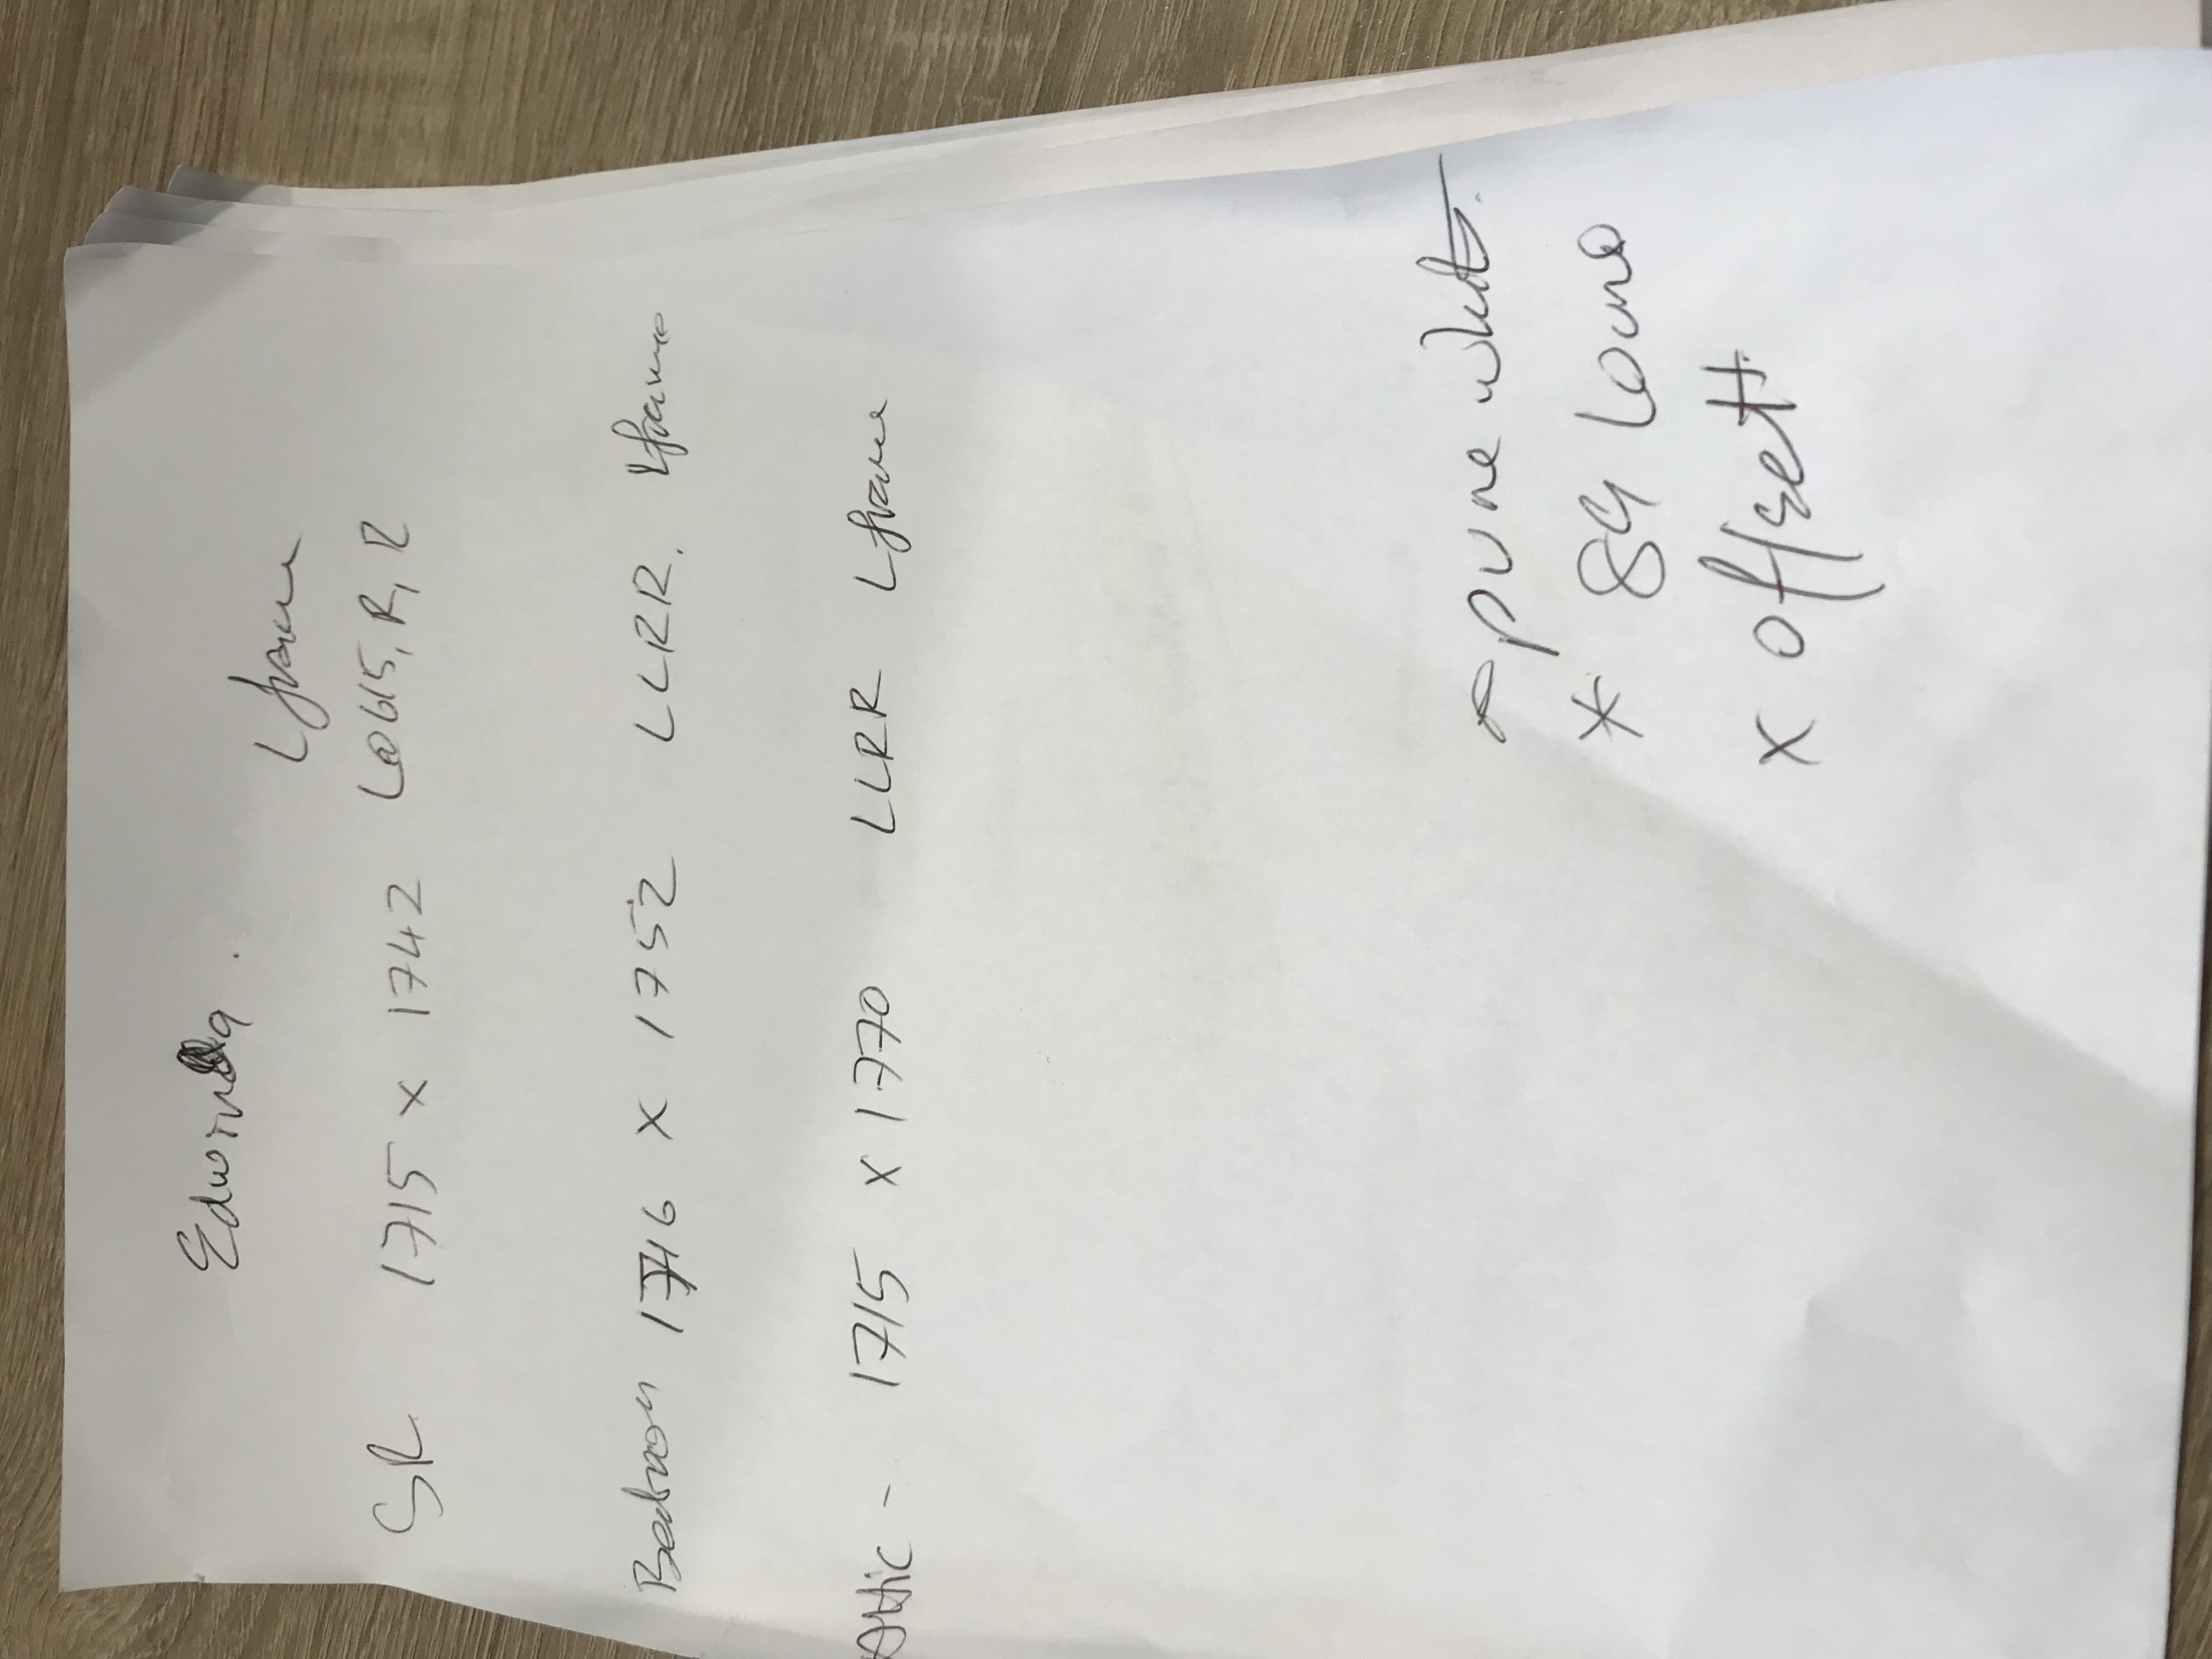 Edwina.
L frame
SR 1715 x 1742 L@615, R, R
Bedroom 1716 x 1752 LLRR. L frame
Attic - 1715 x 1770 LLR L frame
* Pure white.
* 89 Louvre
x offset.